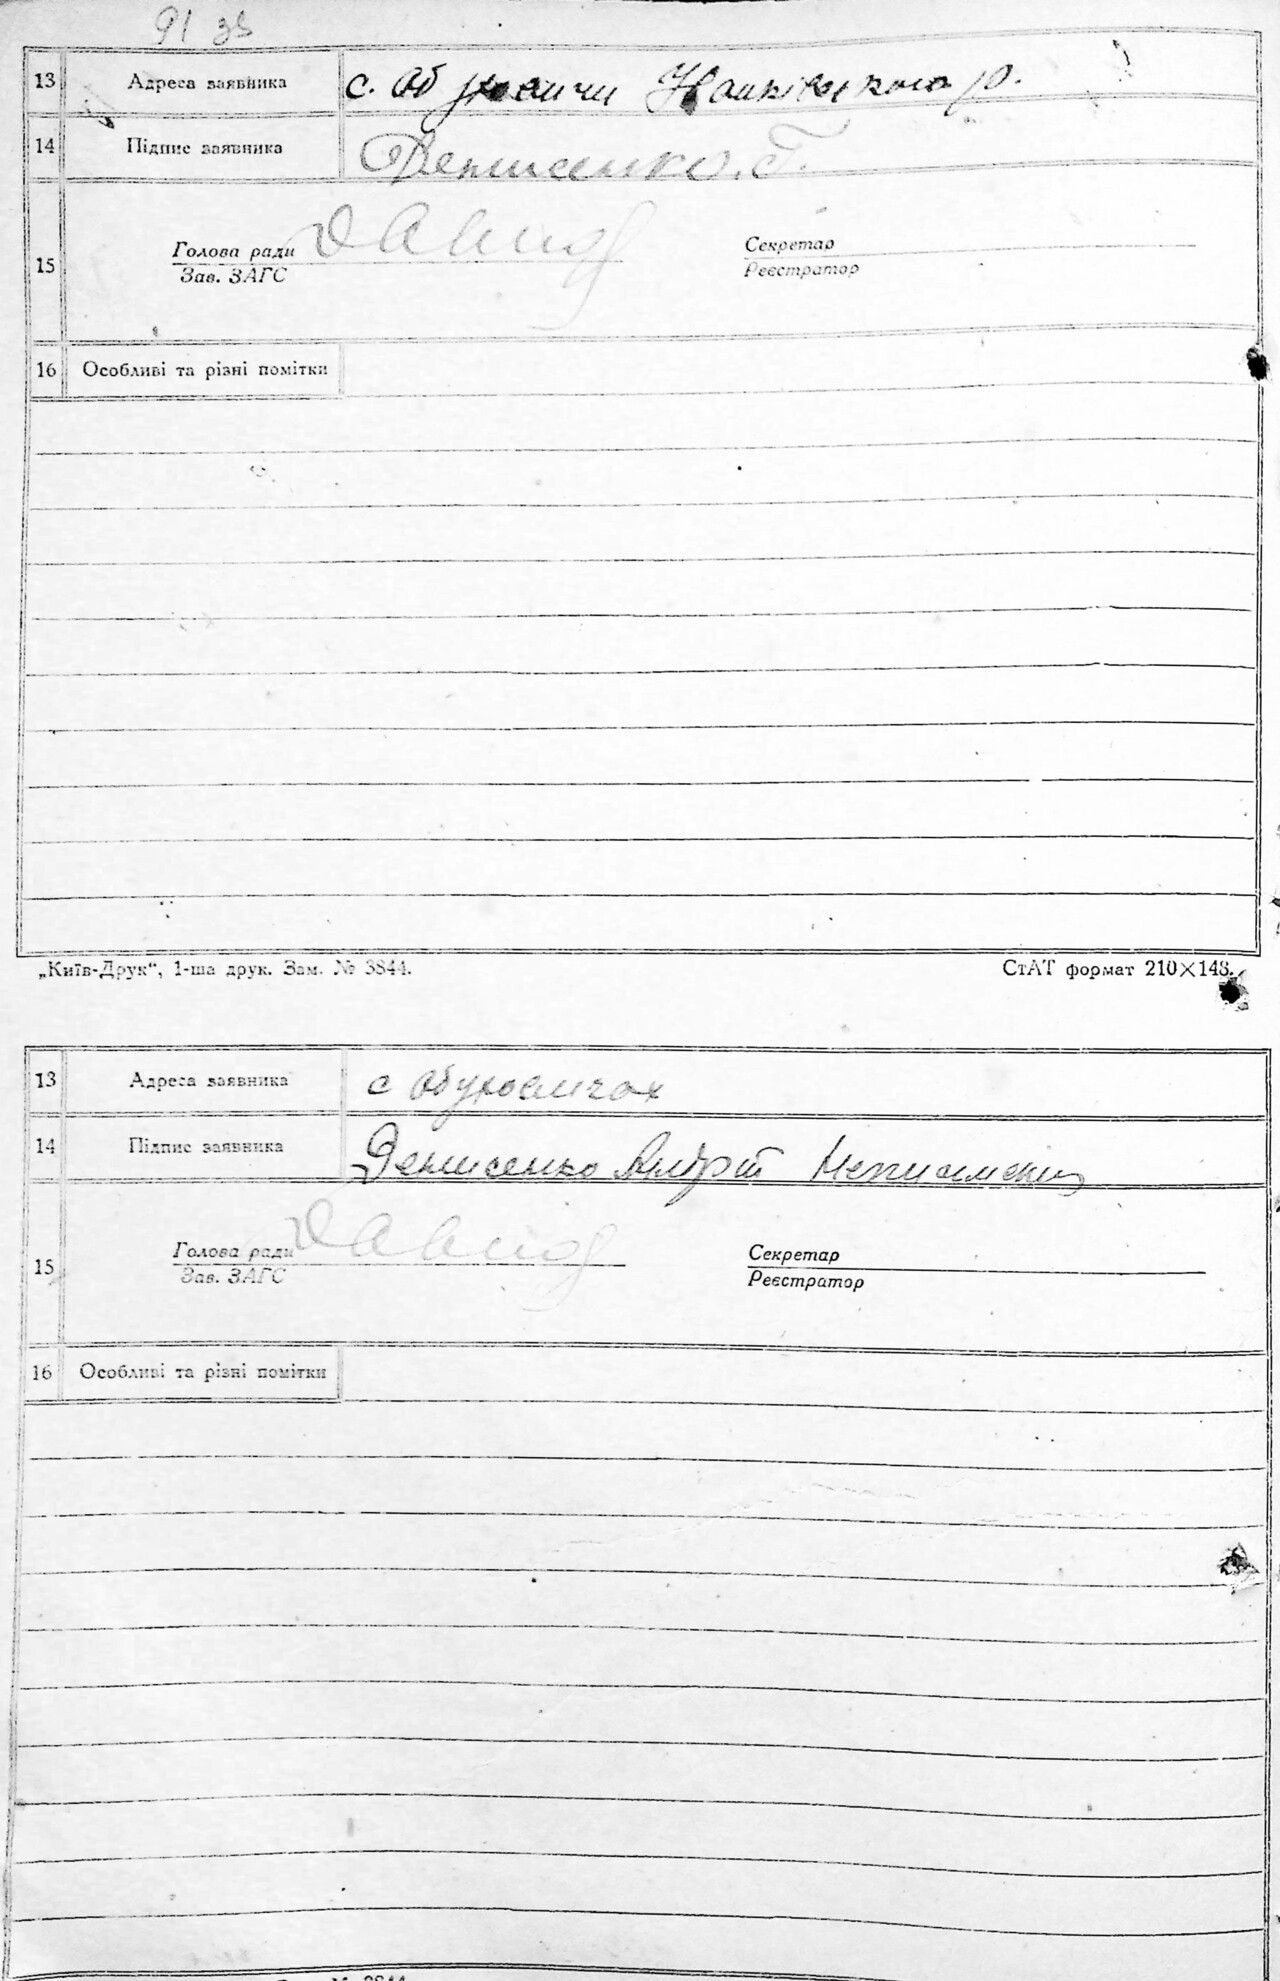 91 зв
13 Адреса заявника с. Обуховичи р.
14 Підпис заявника Денисенко. Г.
15 Голова ради Давид Секретар
Зав. ЗАГС Реєстратор
16 Особливі та різні помітки
„Київ-Друк“, 1-ша друк. Зам. № 3844. СтАТ формат 210×148.
13 Адреса заявника с Обуховичах
14 Підпис заявника Денисенко Андрій
15 Голова ради Давид Секретар
Зав. ЗАГС Реєстратор
16 Особливі та різні помітки
№ 3844